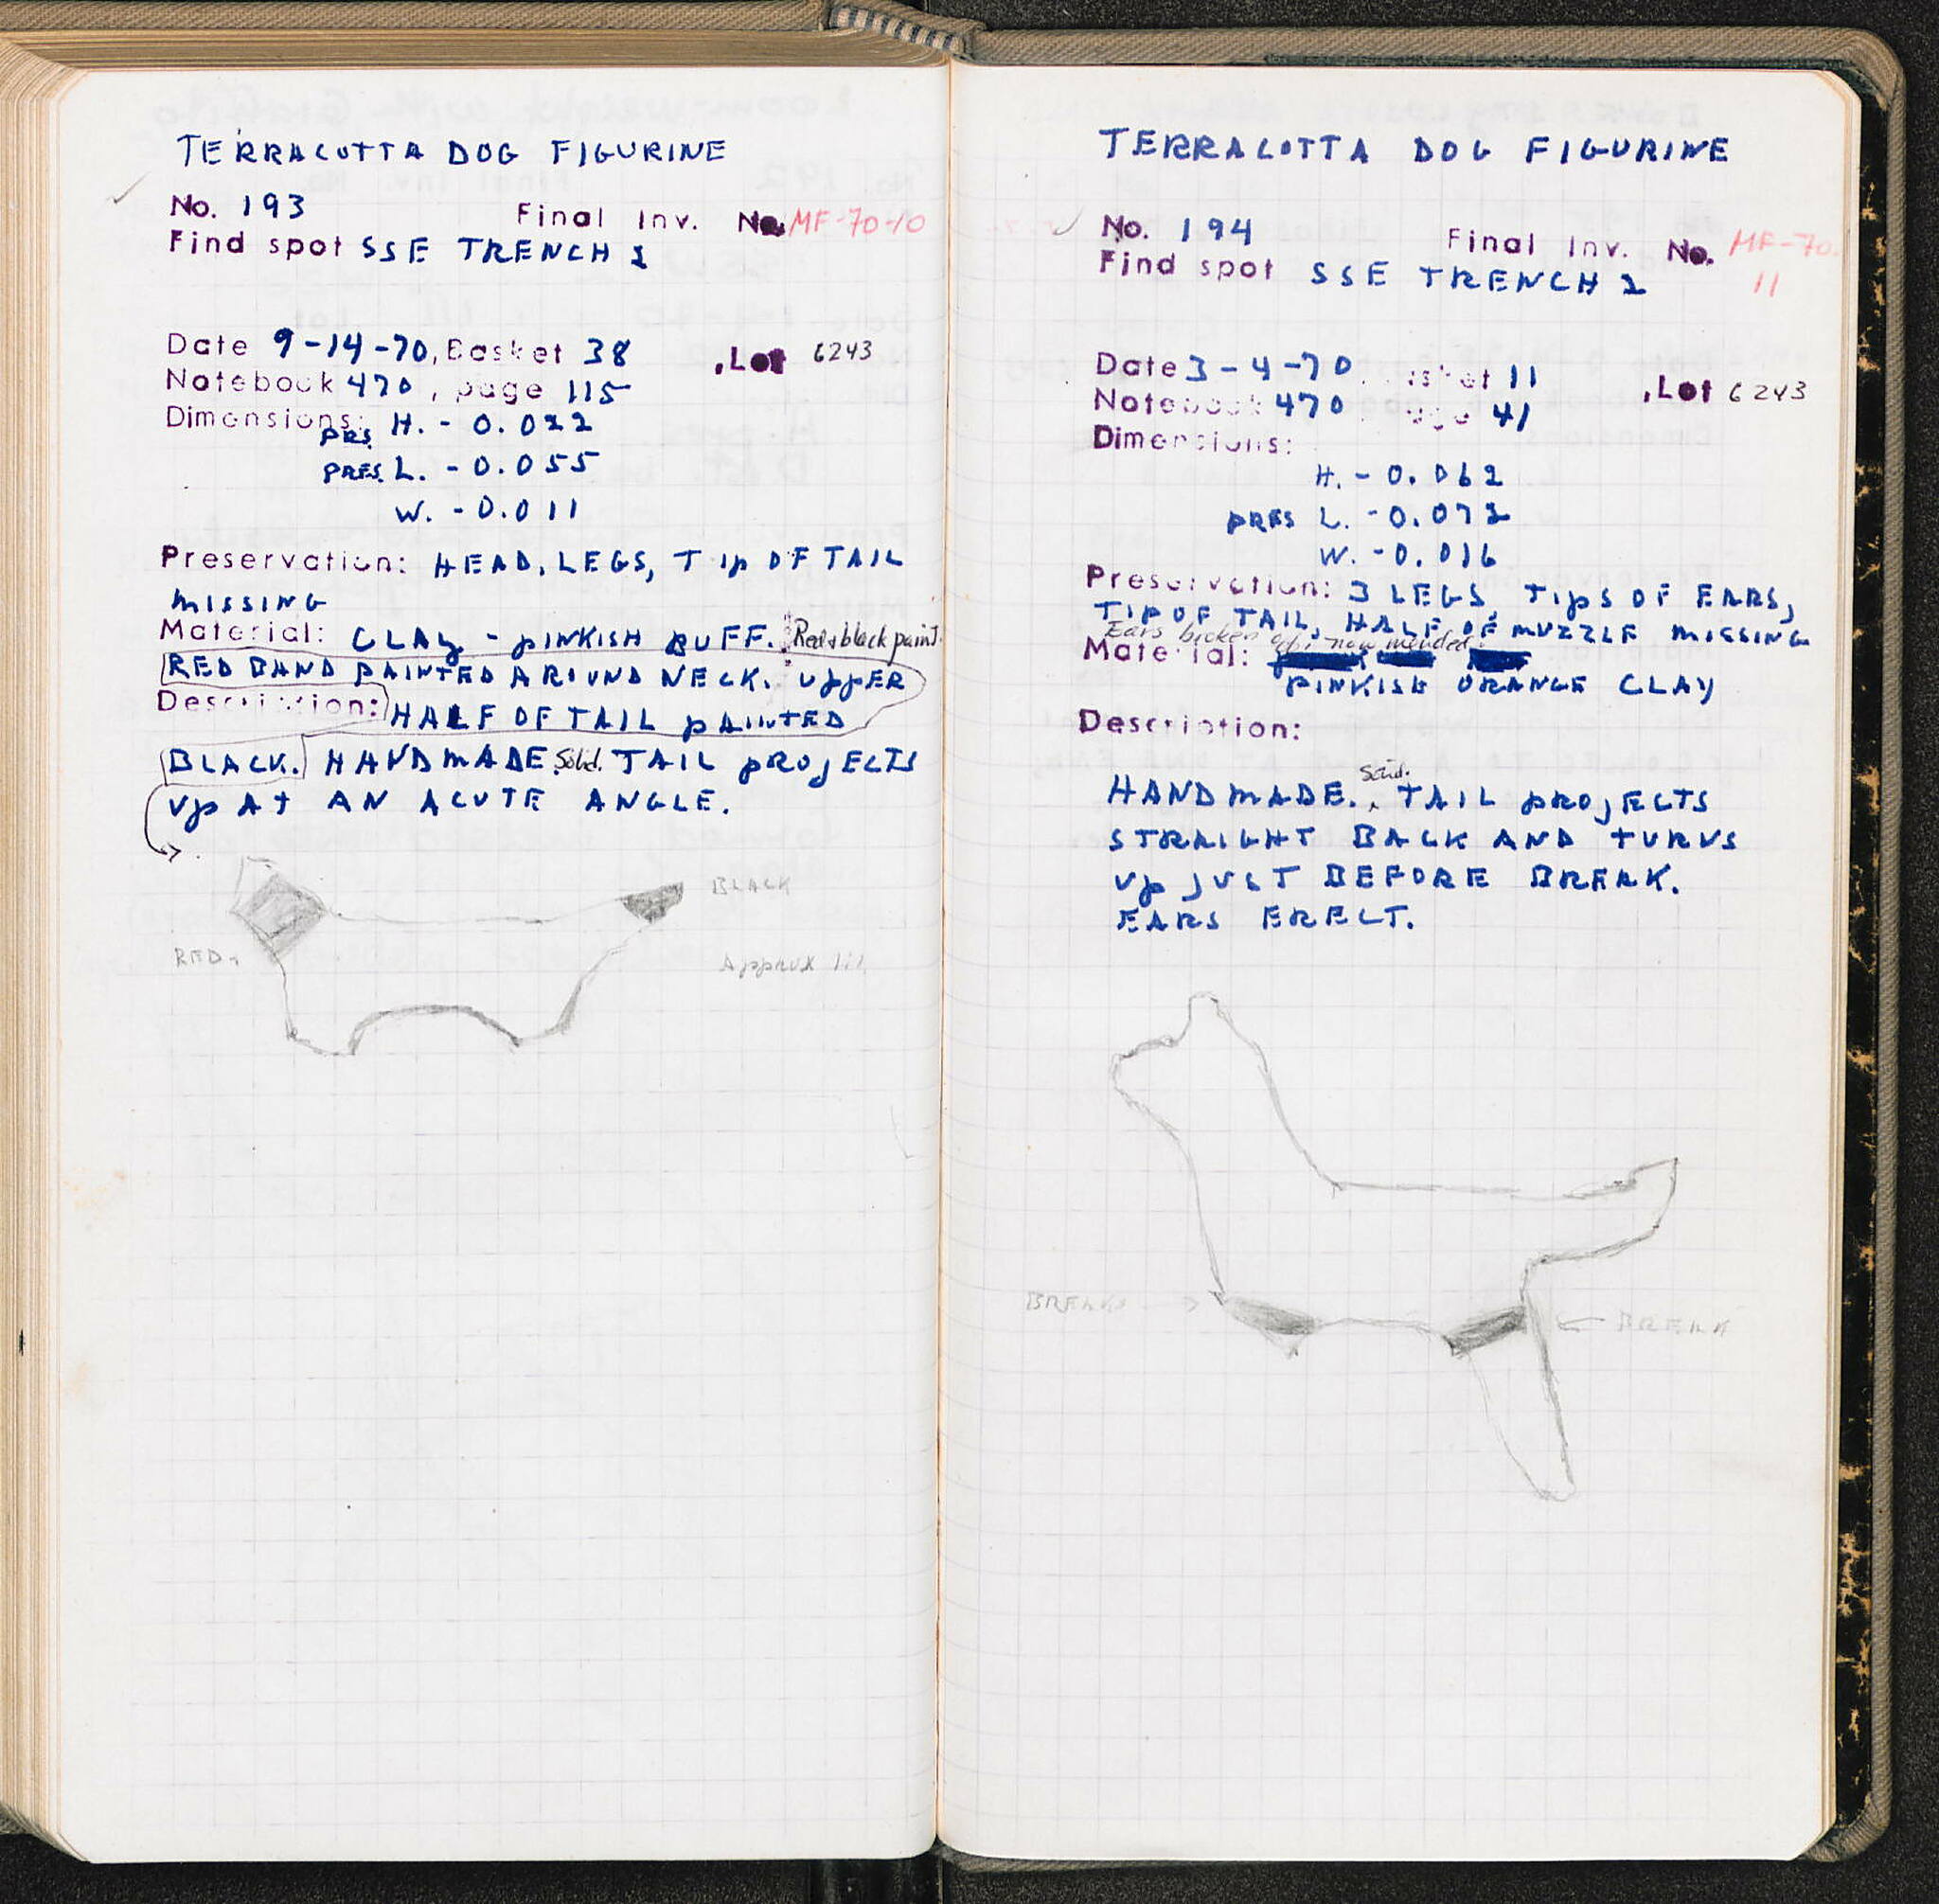 TERRACOTTA DOG FIGURINE
No. 193 Final Inv. No. MF-70-10
Find spot SSE TRENCH 1
Date 9-14-70, Basket 38 , Lot 6243
Notebook 470, page 115
Dimensions:
PRS. H. - 0.022
PRES. L. - 0.055
W. - 0.011
Preservation: HEAD, LEGS, TIP OF TAIL
MISSING
Material: CLAY - PINKISH BUFF. Red + black paint.
RED BAND PAINTED AROUND NECK. UPPER
Description: HALF OF TAIL PAINTED
BLACK. HANDMADE. Solid. TAIL PROJECTS
UP AT AN ACUTE ANGLE.
BLACK
RED
APPROX 1:1
TERRACOTTA DOG FIGURINE
No. 194 Final Inv. No. MF-70-
11
Find spot SSE TRENCH 1
Date 3-4-70, Basket 11 , Lot 6243
Notebook 470, page 41
Dimensions:
H. - 0.062
PRES L. - 0.072
W. - 0.016
Preservation: 3 LEGS, TIPS OF EARS,
TIP OF TAIL, HALF OF MUZZLE MISSING
Ears broken off; now mended.
Material:
PINKISH ORANGE CLAY
Description:
HANDMADE. Solid. TAIL PROJECTS
STRAIGHT BACK AND TURNS
UP JUST BEFORE BREAK.
EARS ERECT.
BREAKS
BREAK